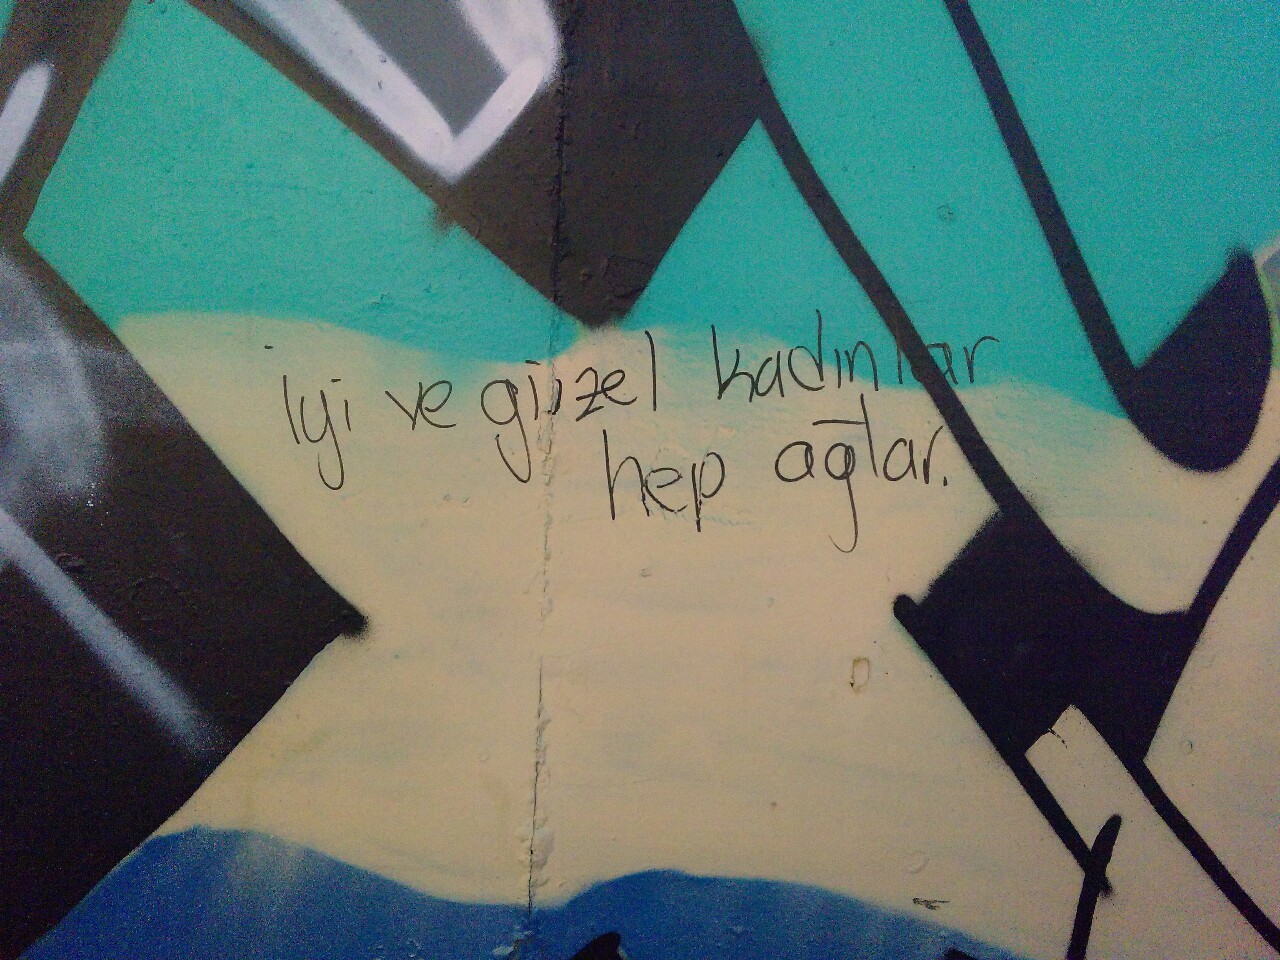 İyi ve güzel kadınlar
hep ağlar.